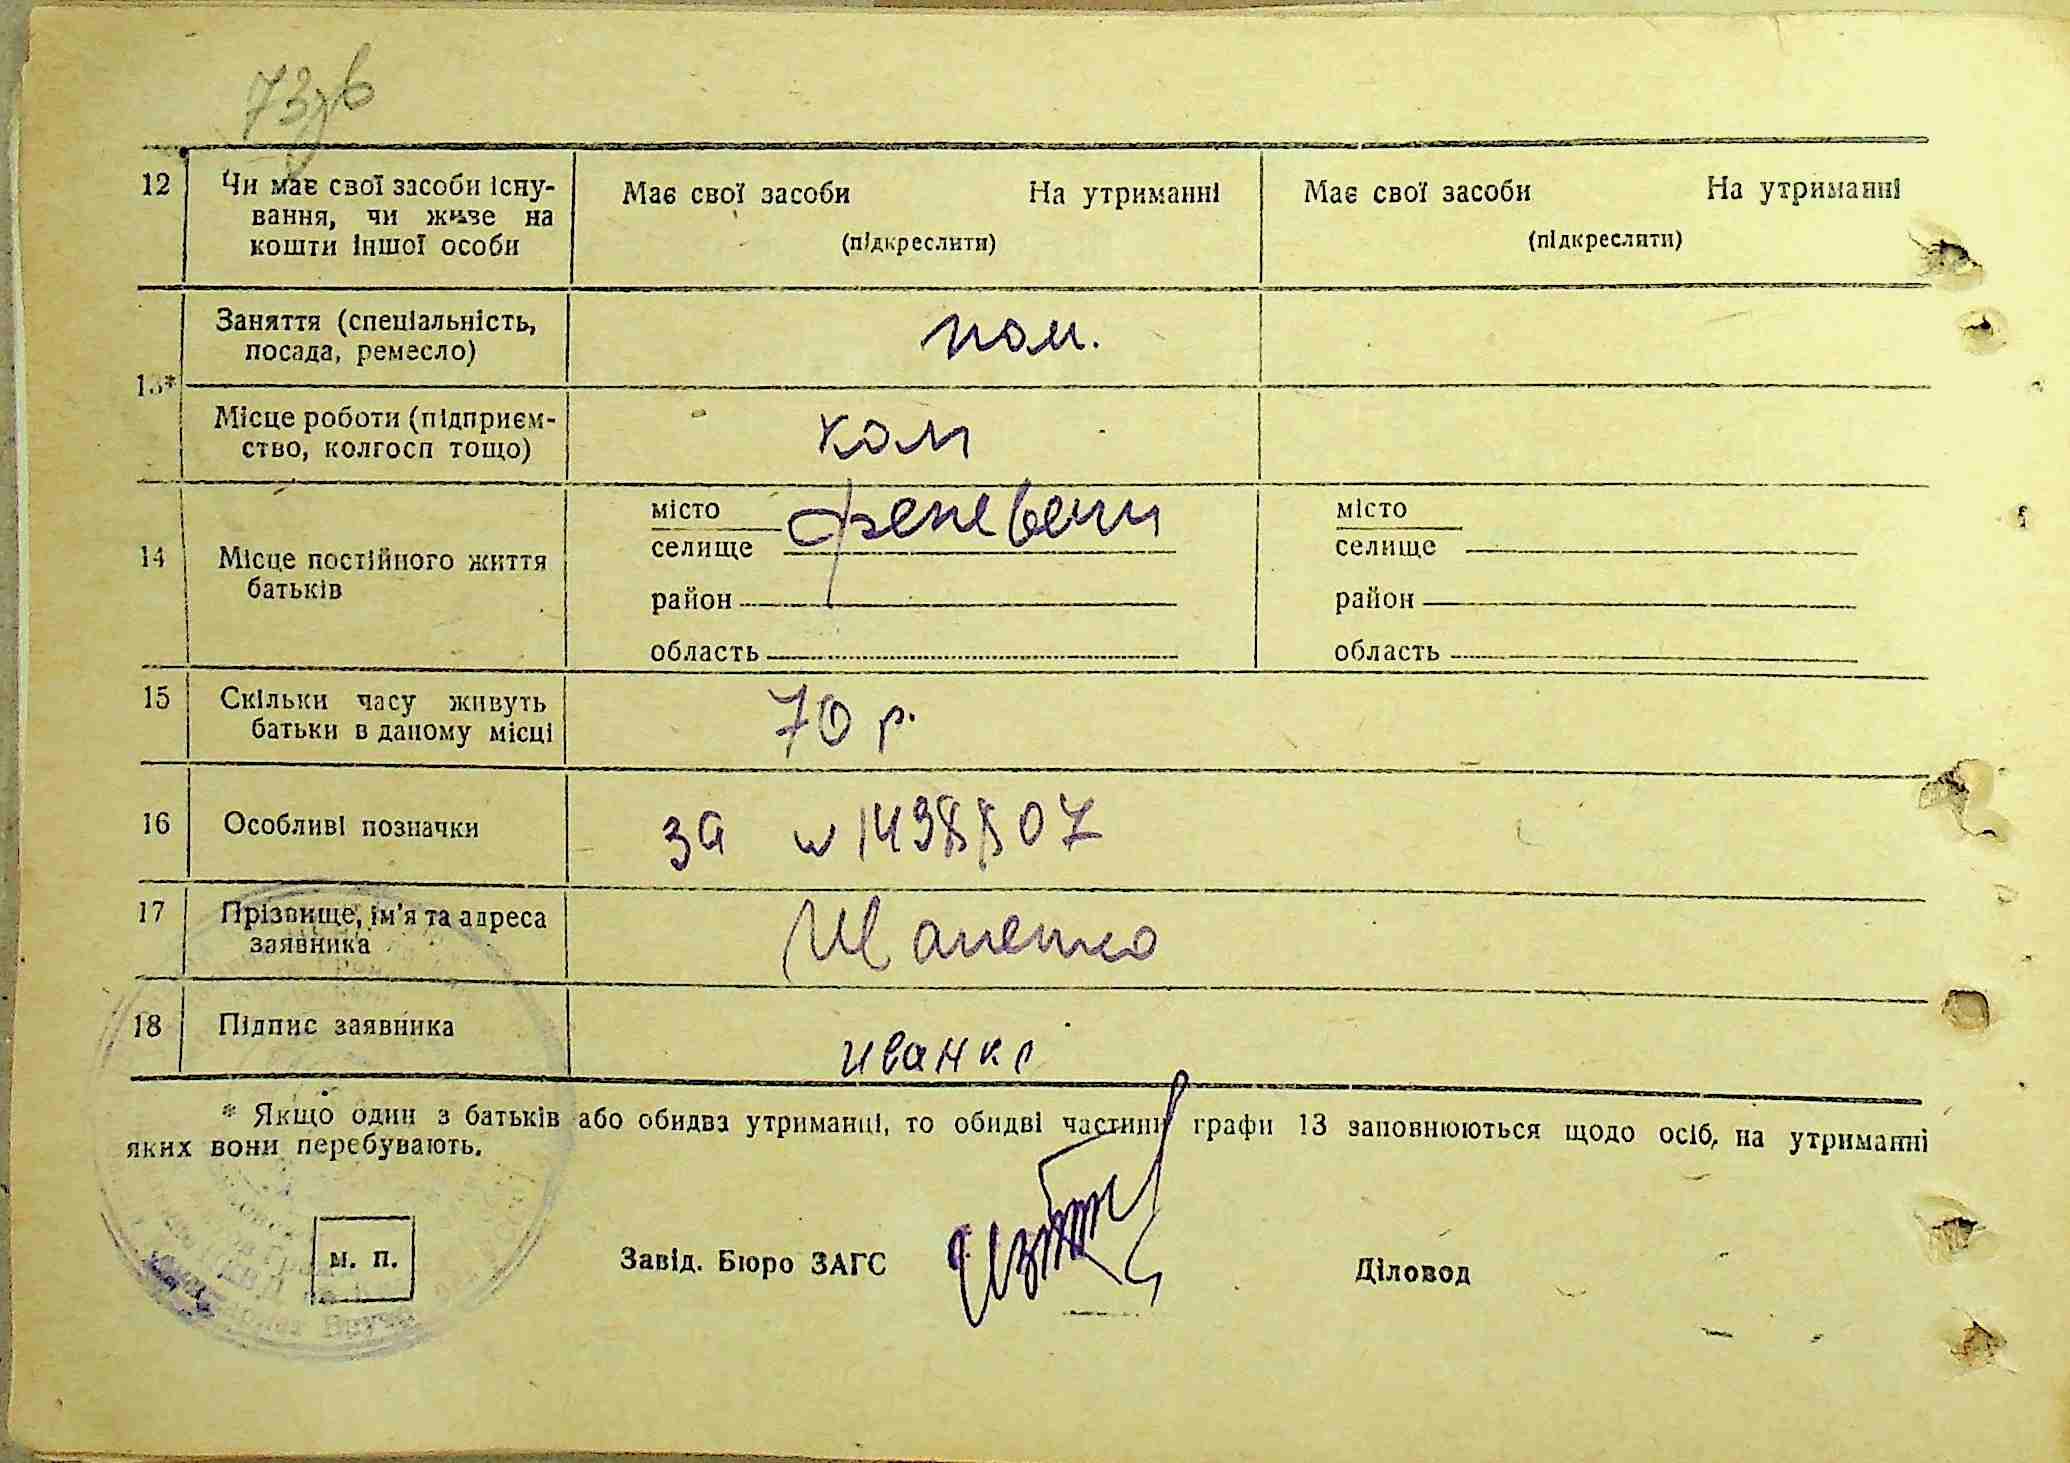 73зв
12 Чи має свої засоби існу-
вання, чи живе на
кошти іншої особи
Має свої засоби На утриманні
(підкреслити)
Має свої засоби На утриманні
(підкреслити)
13*
Заняття (спеціальність,
посада, ремесло)
Місце роботи (підприєм-
ство, колгосп тощо)
кол
14 Місце постійного життя
батьків
місто
селище
район
область
місто
селище
район
область
15 Скільки часу живуть
батьки в даному місці
70 р.
16 Особливі позначки
за
17 Прізвище, ім'я та адреса
заявника
18 Підпис заявника
* Якщо один з батьків або обидва утриманці, то обидві частини графи 13 заповнюються щодо осіб, на утриманні
яких вони перебувають.
м. п.
Завід. Бюро ЗАГС
Діловод